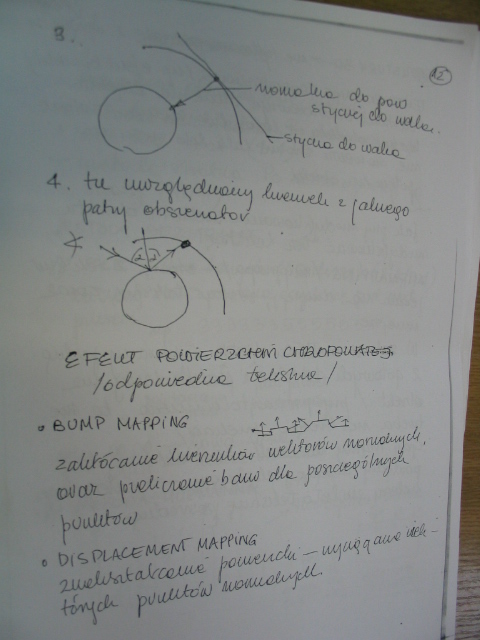 12
3.
normalna do pow
stycznej do walca.
styczna do walca
4. tu uwzględniamy kierunek z jakiego
patrzy obserwator
α α
EFEKT POWIERZCHNI CHROPOWATEJ
/odpowiednia tekstura/
• BUMP MAPPING
zakłócanie kierunków wektorów normalnych,
oraz przeliczanie barw dla poszczególnych
punktów
• DISPLACEMENT MAPPING
zniekształcanie powierzchni –
punktów normalnych.